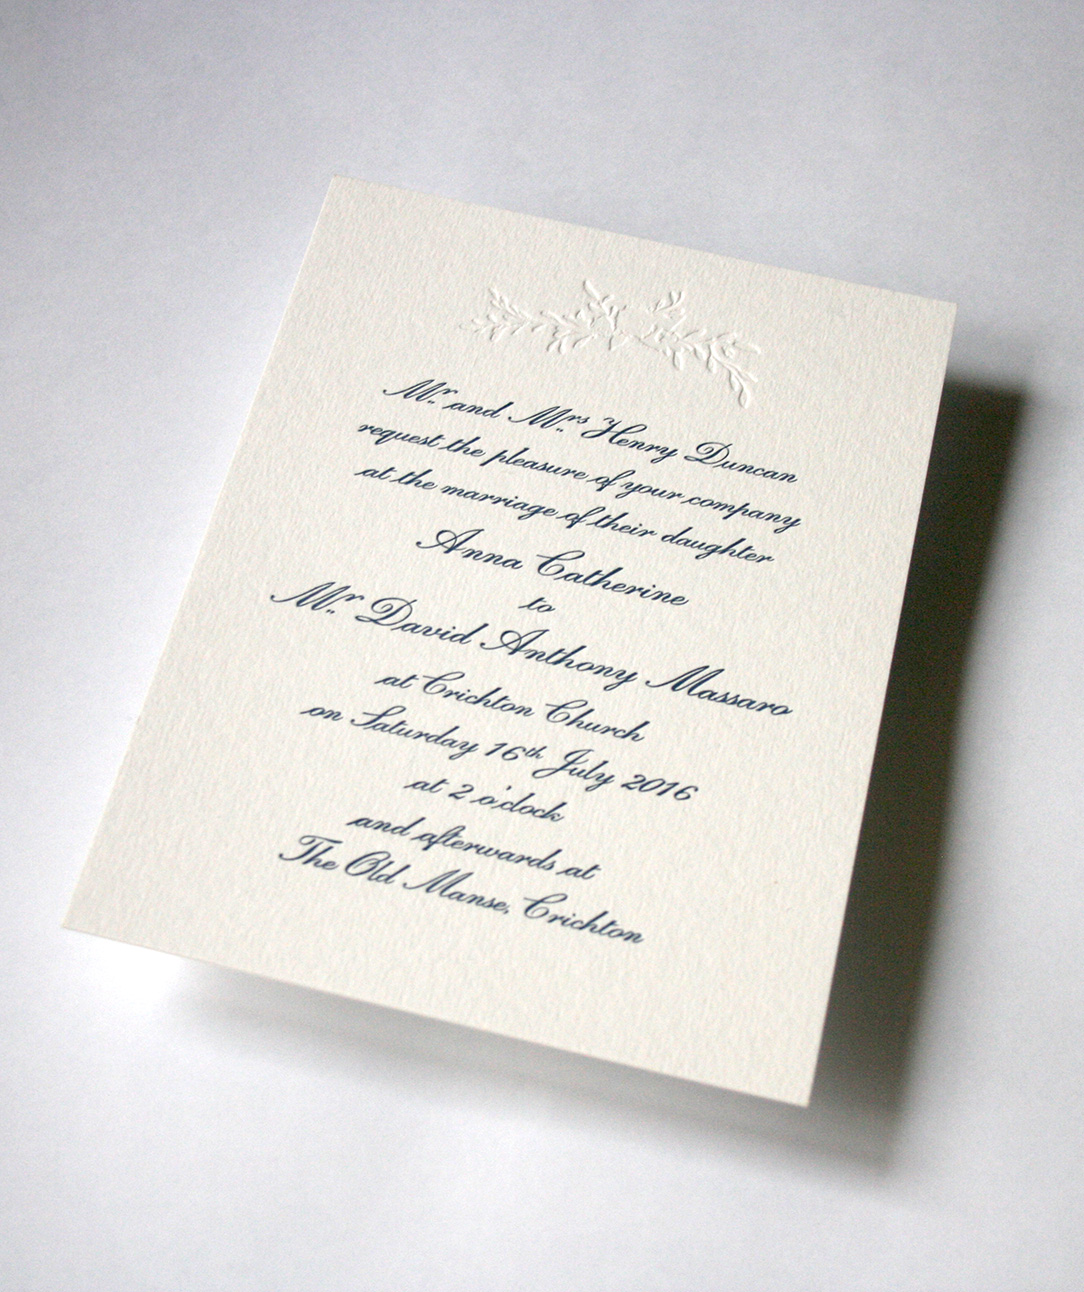 Mr. and Mrs. Henry Duncan
request the pleasure of your company
at the marriage of their daughter
Anna Catherine
to
Mr. David Anthony Massaro
at Crichton Church
on Saturday 16th July 2016
at 2 o'clock
and afterwards at
The Old Manse, Crichton